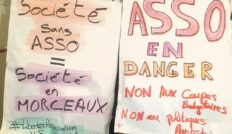 Société
sans
ASSO
=
Société
en
MORCEAUX
ASSO
EN
DANGER
NON AUX Coupes
Budgétaires
NON aux politiques